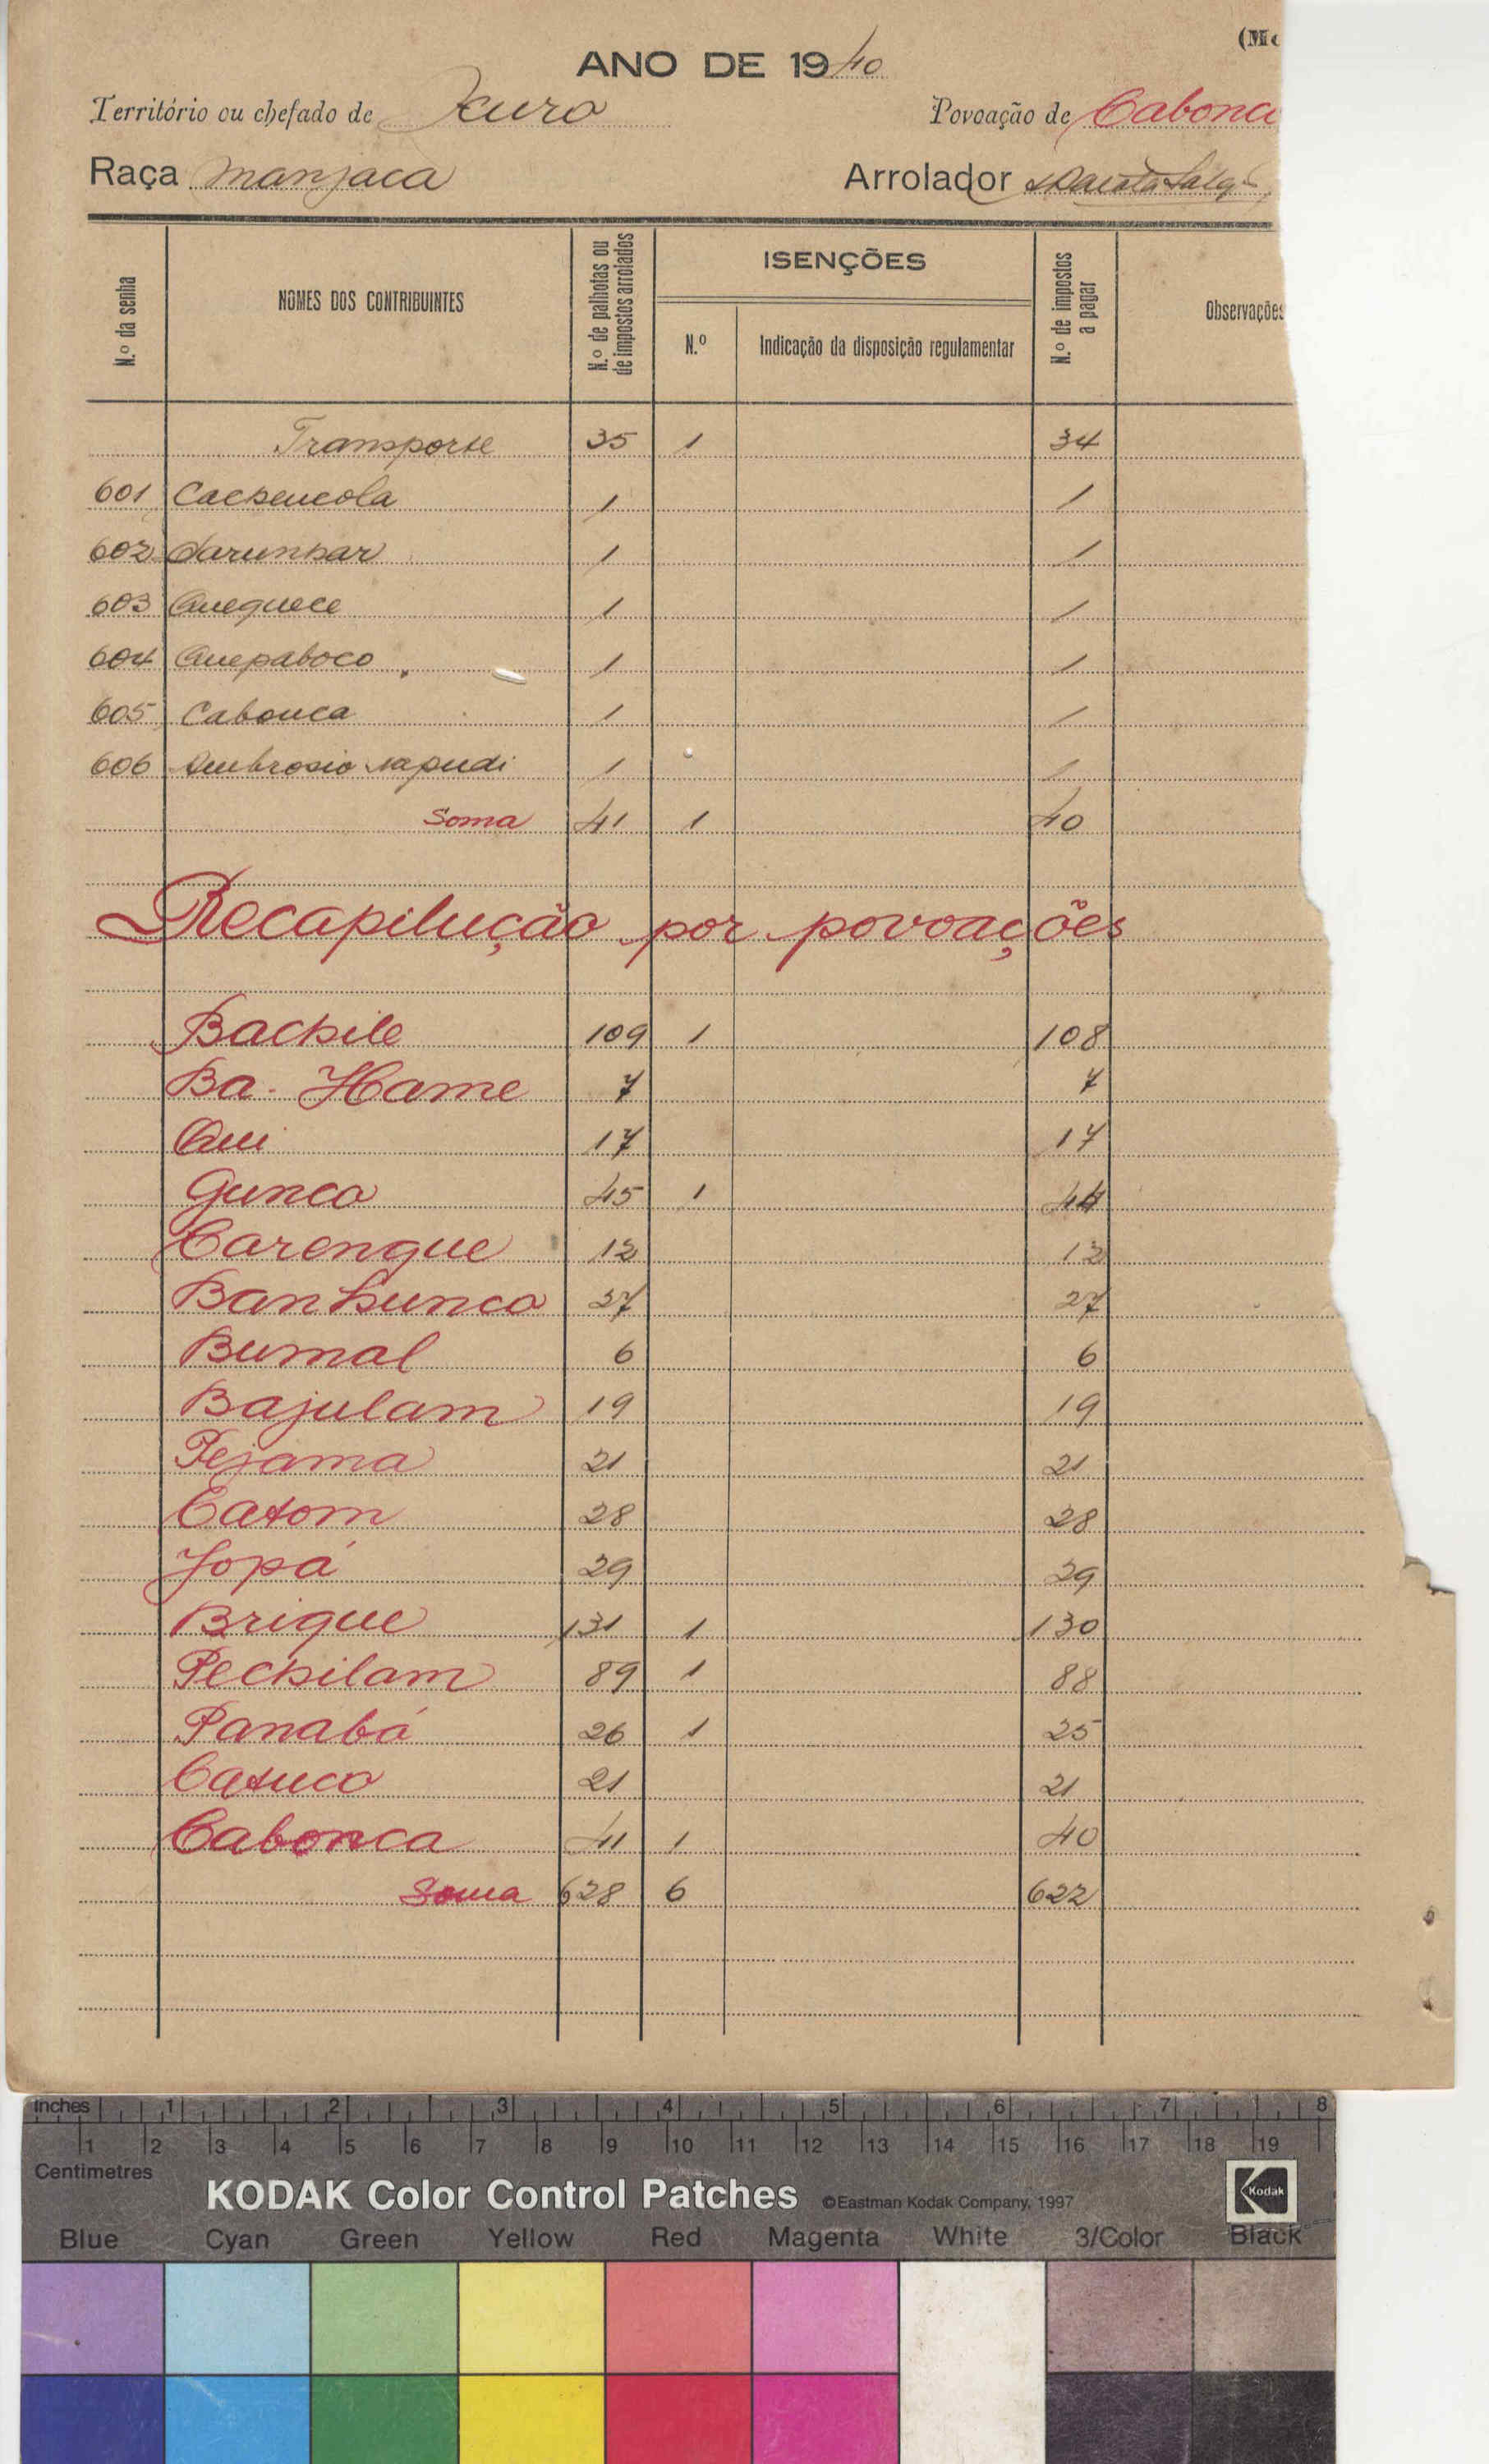 (Mo
ANO DE 1940
Território ou chefado de Xuro Povoação de Cabonca
Raça Manjaca Arrolador
N.º da senha NOMES DOS CONTRIBUINTES N.º de palhotas ou de impostos arrolados ISENÇÕES N.º de impostos a pagar Observações
N.º Indicação da disposição regulamentar
Transporte 35 1 34
601 Cacheucola 1 1
602 Sarunhar 1 1
603 Quequece 1 1
604 Quepaboco 1 1
605 Cabouca 1 1
606 Ambrosio Napudi 1 1
Soma 41 1 40
Recapilução por povoações
Bachile 109 1 108
Ba-Hame 7 7
Qui 17 17
Gunco 45 1 44
Carenque 12 12
Banhunco 27 27
Bumal 6 6
Bajulam 19 19
Pejama 21 21
Catom 28 28
Jopá 29 29
Brique 131 1 130
Pechilam 89 1 88
Panabá 26 1 25
Catuco 21 21
Cabonca 41 1 40
Soma 628 6 622
inches 1 2 3 4 5 6 7 8
1 2 3 4 5 6 7 8 9 10 11 12 13 14 15 16 17 18 19
Centimetres
KODAK Color Control Patches ©Eastman Kodak Company, 1997 Kodak
Blue Cyan Green Yellow Red Magenta White 3/Color Black